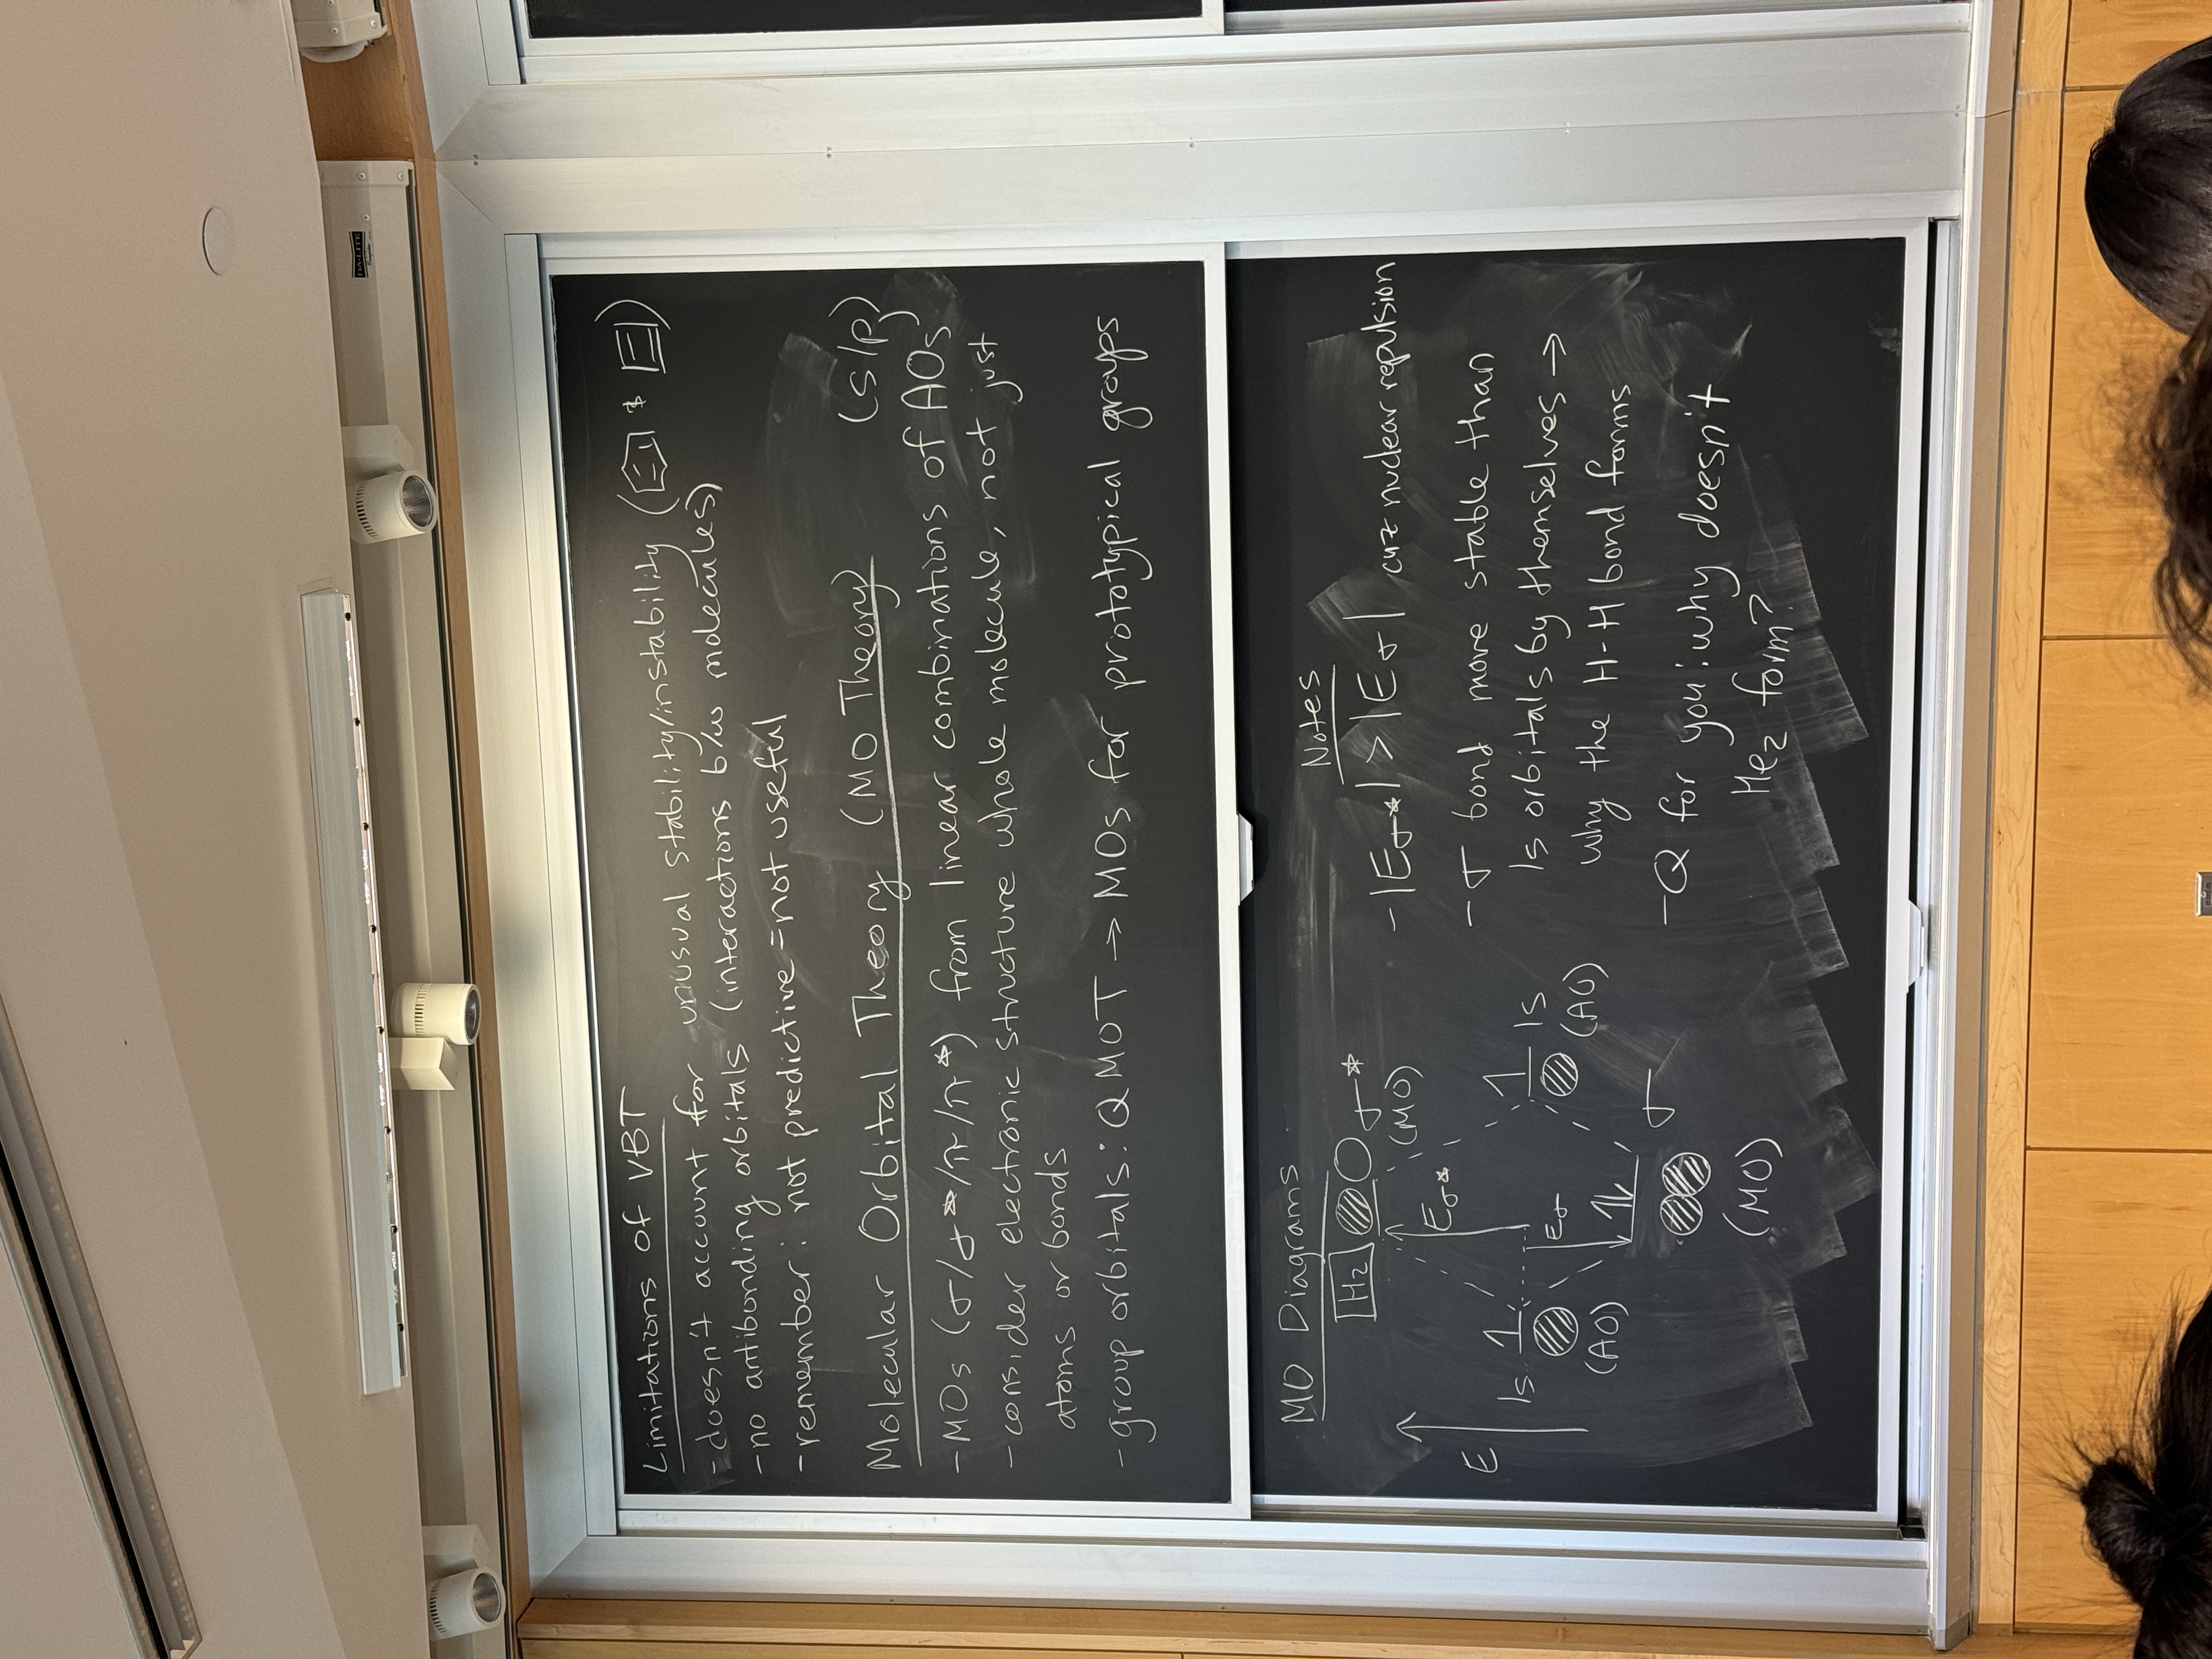 DA-LITE
Limitations of VBT
- doesn't account for unusual stability/instability ( & )
- no antibonding orbitals (interactions b/w molecules)
- remember: not predictive = not useful
Molecular Orbital Theory (MO Theory) (s/p)
- MOs (σ/σ*/π/π*) from linear combinations of AOs
- consider electronic structure whole molecule, not just
atoms or bonds
- group orbitals: QMOT → MOs for prototypical groups
MO Diagrams
H2 σ*
(MO)
Eσ*
E
1s 1 1 1s
(AO) (AO)
Eσ
1L
σ
(MO)
Notes
- |Eσ*| > |Eσ| cuz nuclear repulsion
- σ bond more stable than
1s orbitals by themselves →
why the H-H bond forms
- Q for you: why doesn't
He2 form?